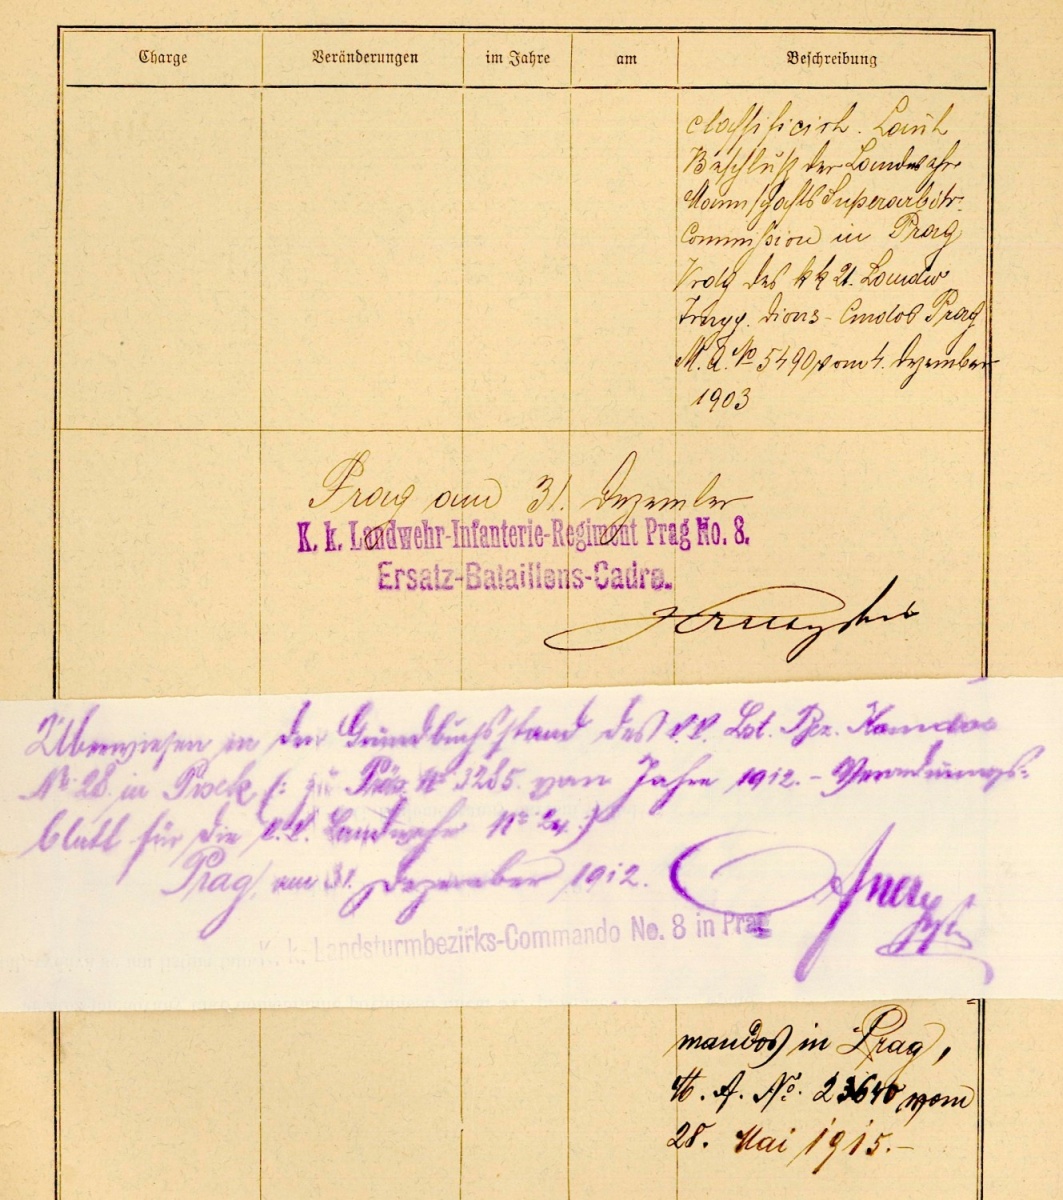 Charge Veränderungen im Jahre am Beschreibung
classificirt. Laut
Beschluß der Landwehr
Mannschafts Superarbitr.
Commission in Prag
Vrdg des kk 21. Landw
Trupp. Dions- Cmdos Prag
M. A. No 5490 vom 4. Dezember
1903
Prag am 31. Dezember
K. k. Landwehr-Infanterie-Regiment Prag No. 8.
Ersatz-Bataillons-Cadre.
Überwiesen in den Grundbuchsstand des k.k. Lst. Bez. Komdos
No 28. in Pisek (: zu Präs. No 3285. vom Jahre 1912. - Verordnungs-
blatt für die k.k. Landwehr No :)
Prag, am 31. Dezember 1912.
k. k. Landsturmbezirks-Commando No. 8 in Prag
mandos in Prag,
M. A. No. 23640 vom
28. Mai 1915.-